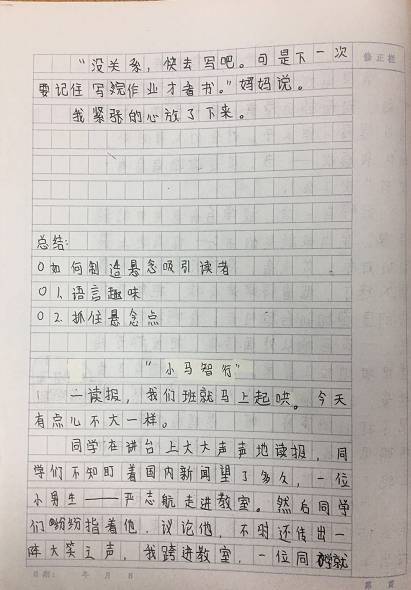 修正栏
“没关系，快去写吧。可是下一次
要记住写完作业才看书。”妈妈说。
我紧张的心放了下来。
总结:
0 如何制造悬念吸引读者
0 1. 语言趣味
0 2. 抓住悬念点
“小马智行”
一读报，我们班就马上起哄。今天
有点儿不大一样。
同学在讲台上大大声声地读报，同
学们不知盯着国内新闻望了多久，一位
小男生——严志航走进教室。然后同学
们纷纷指着他，议论他，不时还传出一
阵大笑之声，我跨进教室，一位同学就
日期： 年 月 日
第 页